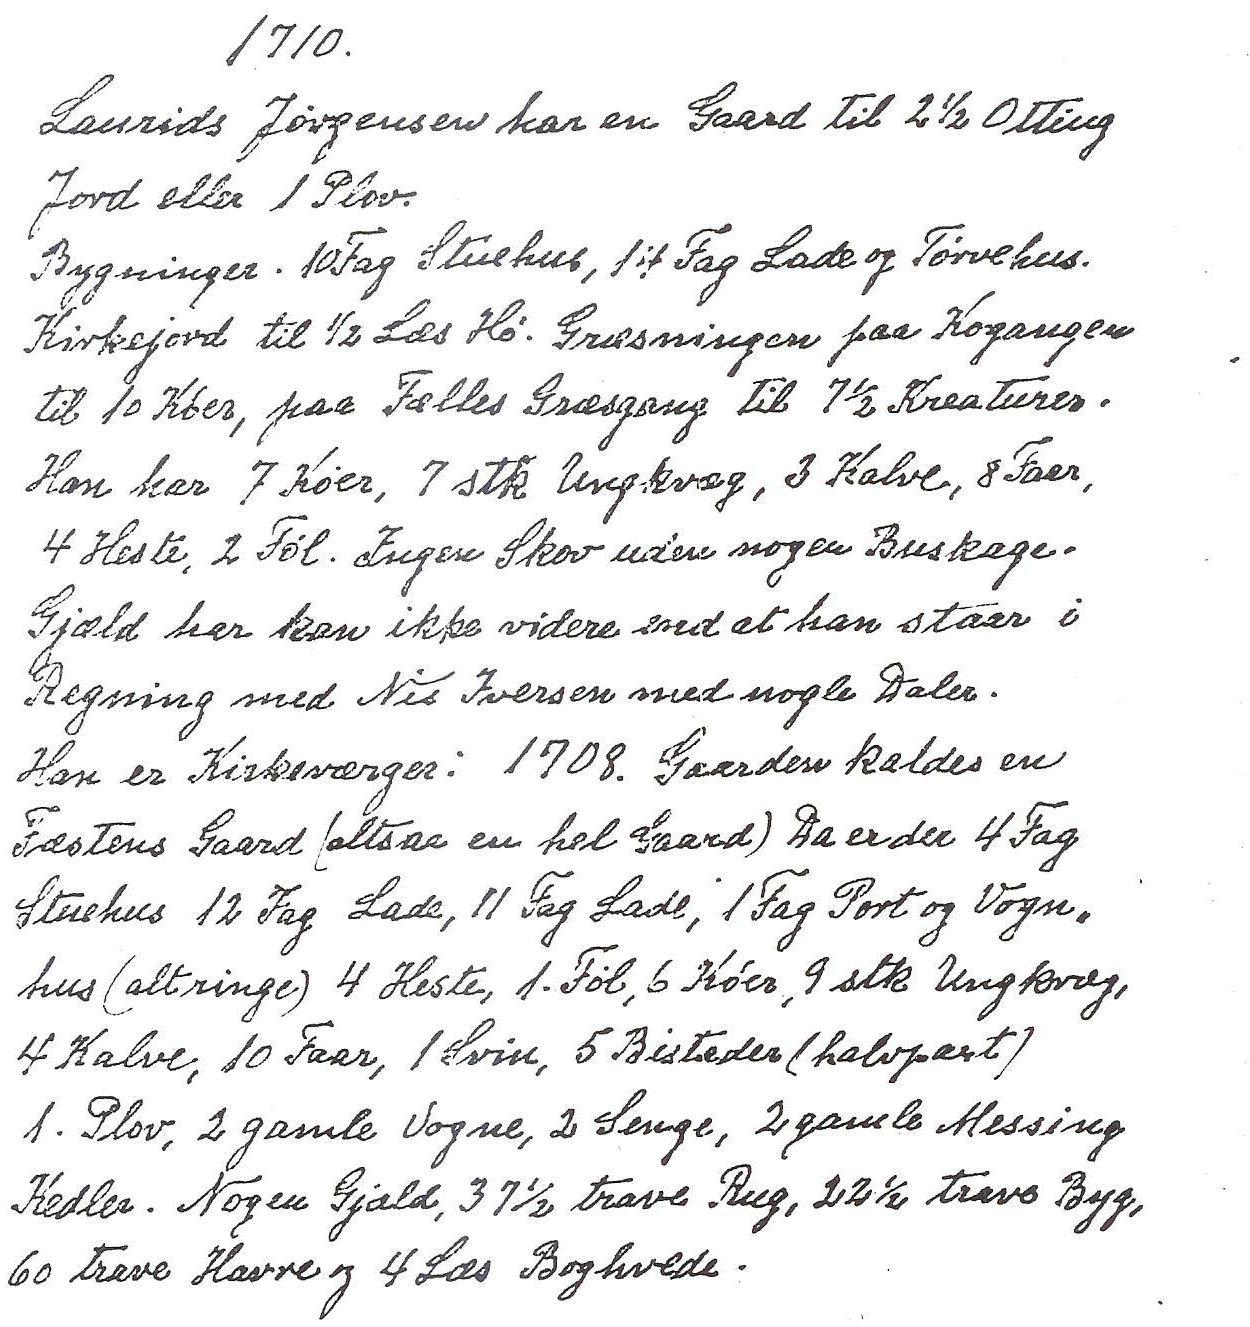 1710.
Laurids Jørgensen har en Gaard til 2 1/2 Otting
Jord eller 1 Plov.
Bygninger. 10 Fag Stuehus, 14 Fag Lade og Tørvehus.
Kirkejord til 1/2 Læs Hø. Græsningen paa Kogangen
til 10 Køer, paa Fælles Græsgang til 7 1/2 Kreaturer.
Han har 7 Køer, 7 stk Ungkvæg, 3 Kalve, 8 Faar,
4 Heste, 2 Føl. Ingen Skov uden nogen Buskage.
Gjæld har han ikke videre end at han staar i
Regning med Nis Iversen med nogle Daler.
Han er Kirkeværger: 1708. Gaarden kaldes en
Fæstens Gaard (altsaa en hel Gaard) Da er der 4 Fag
Stuehus 12 Fag Lade, 11 Fag Lade, 1 Fag Port og Vogn„
hus (alt ringe) 4 Heste, 1. Føl, 6 Køer, 9 stk Ungkvæg,
4 Kalve, 10 Faar, 1 Svin, 5 Bistæder (halvpart)
1. Plov, 2 gamle Vogne, 2 Senge, 2 gamle Messing
Kedler. Nogen Gjæld, 37 1/2 trave Rug, 22 1/2 trave Byg,
60 trave Havre og 4 Læs Boghvede.